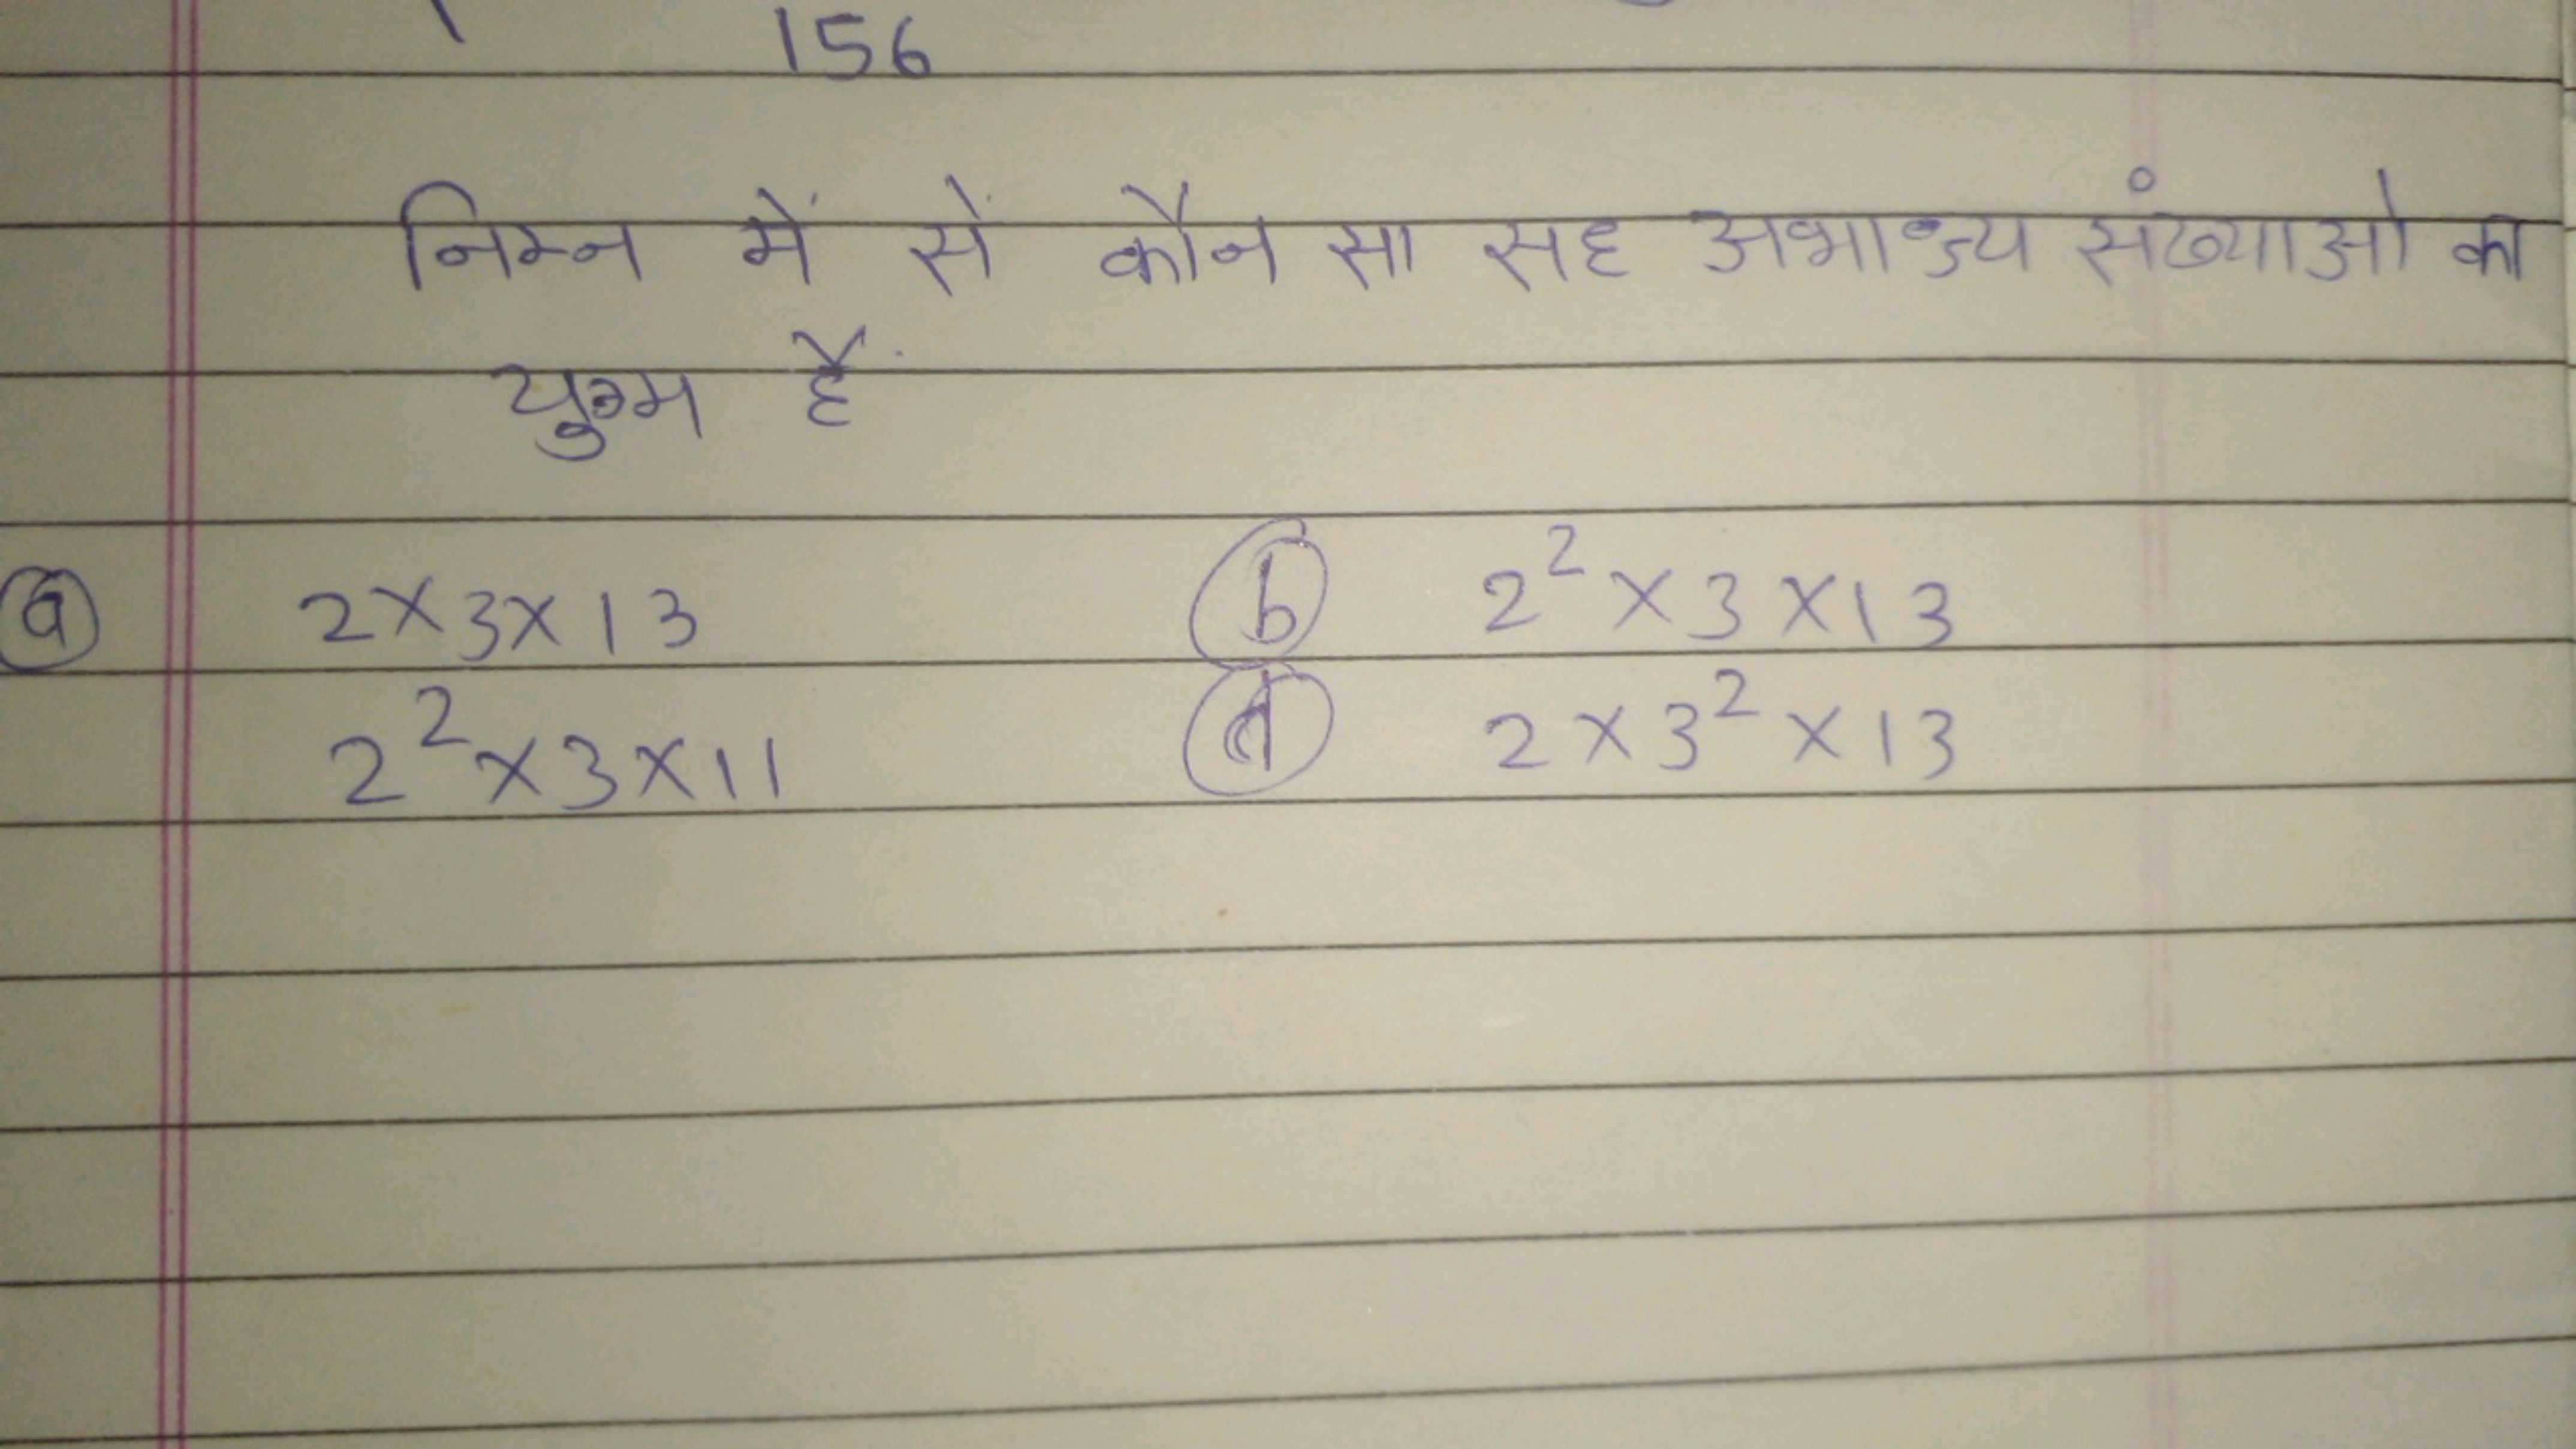 156
निम्न में से कौन सा सह अभाज्य संख्याओ का
युग्म है
a 2×3×13 b 2²×3×13
2²×3×11 d 2×3²×13